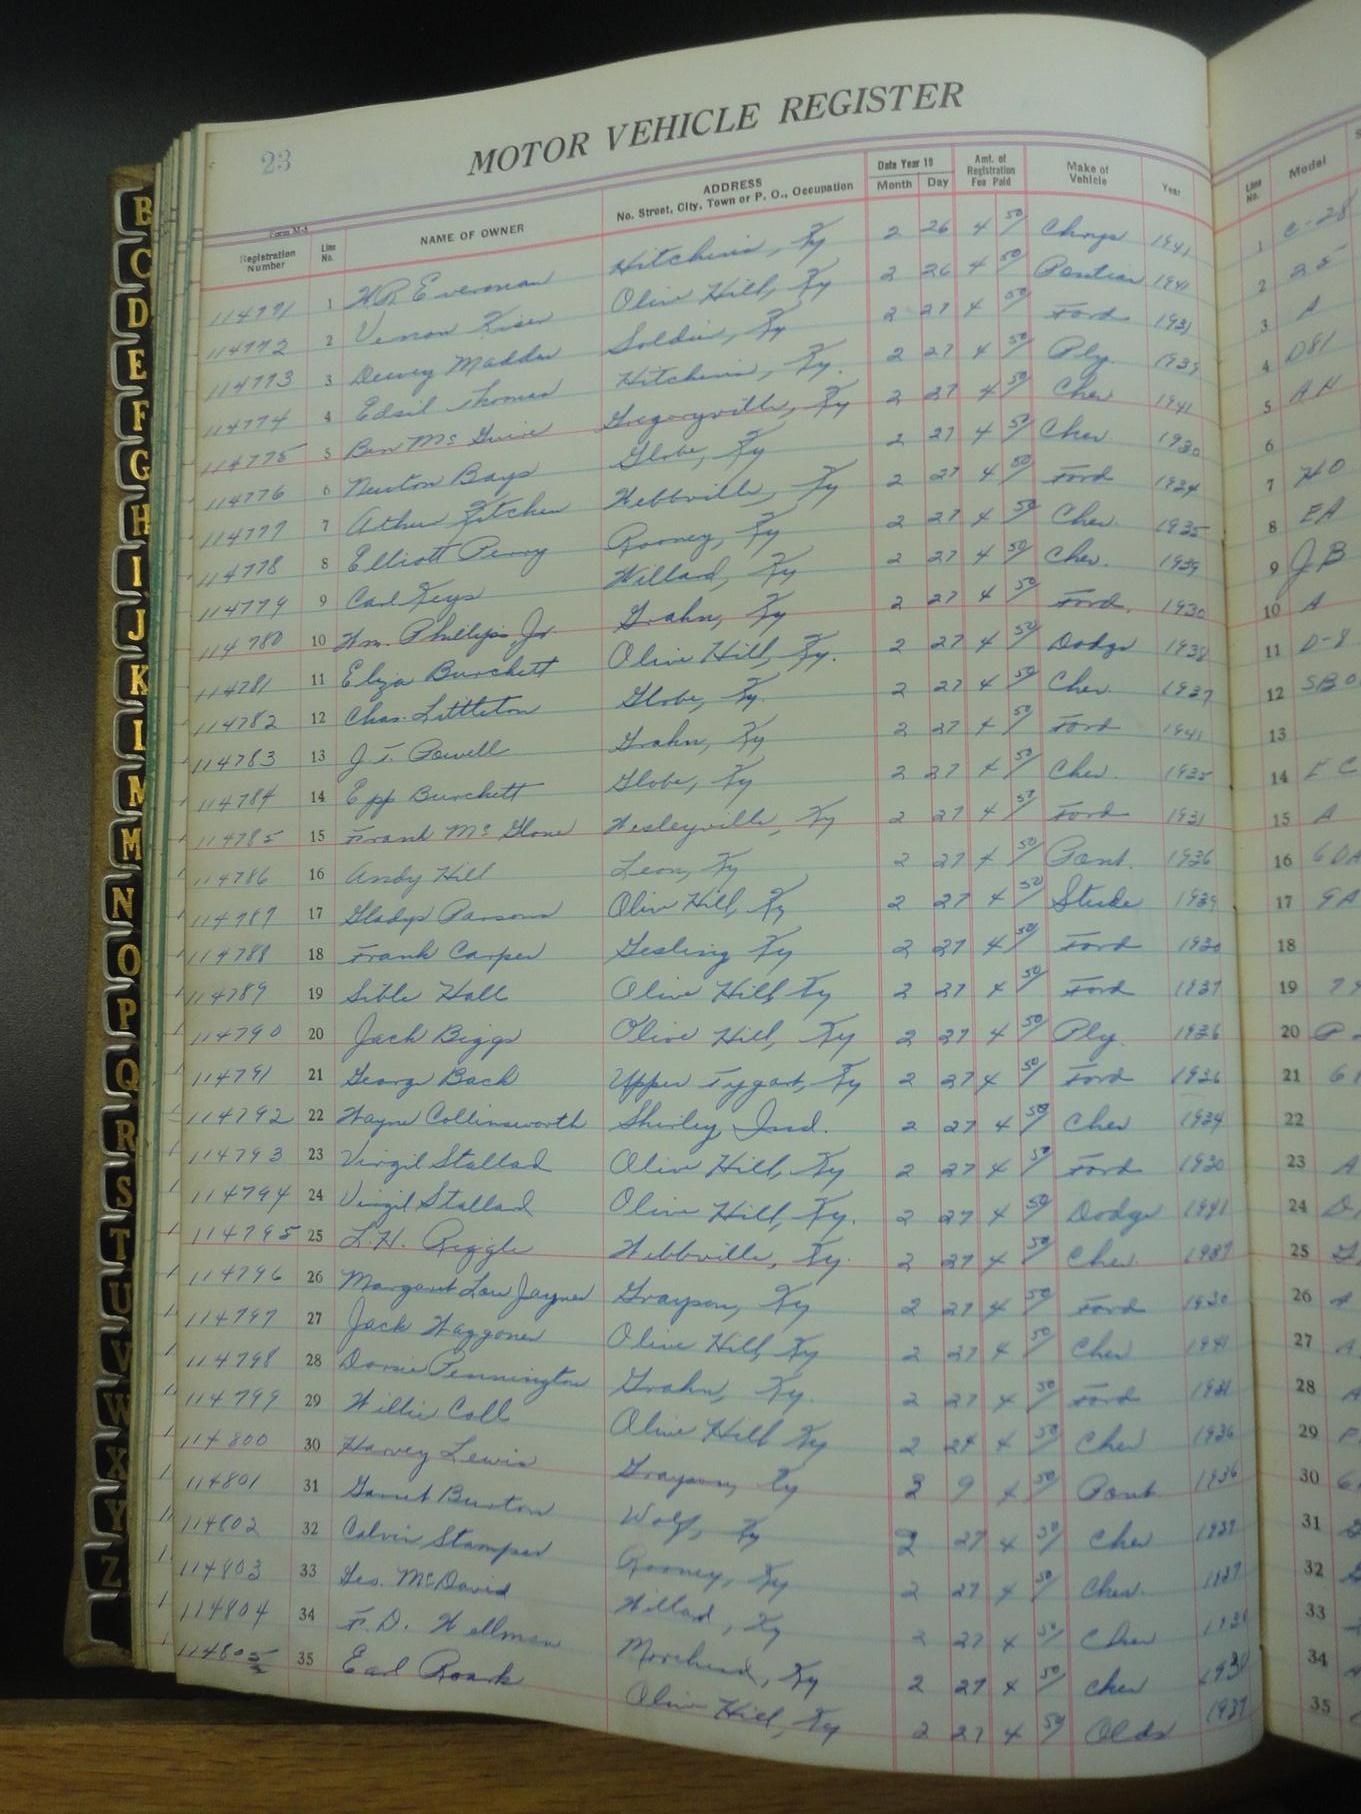 23
MOTOR VEHICLE REGISTER
Form M-4
Registration Number Line No. NAME OF OWNER ADDRESS No. Street, City, Town or P. O., Occupation Date Year 19 Month Day Amt. of Registration Fee Paid Make of Vehicle Year Line No. Model
114771 1 W.R. Everman Hitchins, Ky 2 26 4 50 Chrys 1941 1 C-28
114772 2 Vernon Kiser Olive Hill, Ky 2 26 4 50 Pontiac 1941 2 25
114773 3 Dewey Madden Soldier, Ky 2 27 4 50 Ford 1931 3 A
114774 4 Edsil Thomas Hitchins, Ky. 2 27 4 50 Ply 1939 4 D81
114775 5 Ben McGuire Gregoryville, Ky 2 27 4 50 Chev 1941 5 AH
114776 6 Newton Bays Globe, Ky 2 27 4 50 Chev. 1930 6
114777 7 Arthur Kitchen Webbville, Ky 2 27 4 50 Ford 1934 7 HO
114778 8 Elliott Perry Rooney, Ky 2 27 4 50 Chev. 1935 8 EA
114779 9 Carl Keys Willard, Ky 2 27 4 50 Chev. 1939 9 JB
114780 10 Wm. Phillips Jr Grahn, Ky 2 27 4 50 Ford. 1930 10 A
114781 11 Eliza Burchett Olive Hill, Ky. 2 27 4 50 Dodge 1938 11 D-8
114782 12 Chas. Littleton Globe, Ky. 2 27 4 50 Chev. 1937 12
114783 13 J. T. Powell Grahn, Ky 2 27 4 50 Ford 1941 13
114784 14 Epp Burchett Globe, Ky 2 27 4 50 Chev. 1935 14 EC
114785 15 Frank McGlone Wesleyville, Ky 2 27 4 50 Ford 1931 15 A
114786 16 Andy Hill Leon, Ky 2 27 4 50 Pont. 1936 16 6DA
114787 17 Gladys Parsons Olive Hill, Ky 2 27 4 50 Stude 1939 17 9A
114788 18 Frank Carper Gesling Ky 2 27 4 50 Ford 1930 18
114789 19 Sible Hall Olive Hill, Ky 2 27 4 50 Ford 1937 19
114790 20 Jack Biggs Olive Hill, Ky 2 27 4 50 Ply. 1936 20 P
114791 21 George Back Upper Tygart, Ky 2 27 4 50 Ford 1936 21
114792 22 Wayne Collinsworth Shirley, Ind. 2 27 4 50 Chev 1934 22
114793 23 Virgil Stallard Olive Hill, Ky 2 27 4 50 Ford 1930 23 A
114794 24 Virgil Stallard Olive Hill, Ky. 2 27 4 50 Dodge 1941 24 D
114795 25 L.H. Riggle Webbville, Ky. 2 27 4 50 Chev. 1937 25
114796 26 Margaret Lou Jayne Grayson, Ky 2 27 4 50 Ford 1930 26 A
114797 27 Jack Waggoner Olive Hill, Ky 2 27 4 50 Chev 1941 27 A
114798 28 Dorsie Pennington Grahn, Ky. 2 27 4 50 Ford 1931 28 A
114799 29 Willie Call Olive Hill Ky 2 27 4 50 Chev 1936 29 F
114800 30 Harvey Lewis Grayson, Ky 2 9 4 50 Pont. 1936 30 6
114801 31 Garnet Burton Wolf, Ky 2 27 4 50 Chev 1937 31
114802 32 Calvin Stamper Rooney, Ky 2 27 4 50 Chev. 1937 32
114803 33 Geo. McDavid Willard, Ky 2 27 4 50 Chev 33
114804 34 F.D. Wellman Morehead, Ky 2 27 4 50 Chev 34
114805 35 Earl Roark Olive Hill, Ky 2 27 4 50 Olds 1937 35
B
C
D
E
F
G
H
I
J
K
L
M
M
N
O
P
Q
R
S
T
U
V
W
X
Y
Z